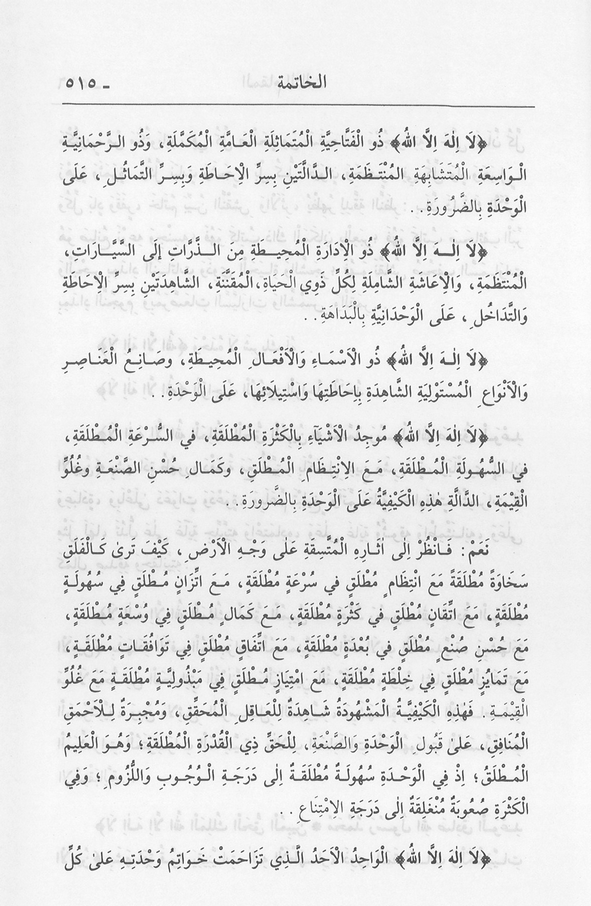 الخاتمة ـ ٥١٥
﴿لَا اِلٰهَ اِلَّا اللهُ﴾ ذُو الْفَتَّاحِيَّةِ الْمُتَمَاثِلَةِ الْعَامَّةِ الْمُكَمَّلَةِ، وَذُو الـرَّحْمَانِيَّـةِ
الْـوَاسِعَةِ الْمُتَشَابِهَةِ الْمُنْتَـظَمَةِ، الـدَّالَّتَيْنِ بِسِرِّ الْاِحَاطَةِ وَبِسِرِّ التَّمَاثُـلِ، عَلَى
الْوَحْدَةِ بِالضَّرُورَةِ..
﴿لَا اِلٰـهَ اِلَّا اللهُ﴾ ذُو الْاِدَارَةِ الْمُحِيـطَةِ مِنَ الـذَّرَّاتِ إِلَى السَّيَّـارَاتِ،
الْمُنْتَظَمَةِ، وَالْاِعَاشَةِ الشَّامِلَةِ لِكُلِّ ذَوِي الْحَيَاةِ، الْمُقَنَّنَةِ، الشَّاهِدَتَيْنِ بِسِرِّ الْاِحَاطَةِ
وَالتَّدَاخُلِ، عَلَى الْوَحْدَانِيَّةِ بِالْبَدَاهَةِ..
﴿لَا اِلٰـهَ اِلَّا اللهُ﴾ ذُو الْاَسْمَاءِ وَالْاَفْعَـالِ الْمُحِيطَةِ، وصَـانِـعُ الْعَنَاصِـرِ
وَالْاَنْوَاعِ الْمُسْتَوْلِيَةِ الشَّاهِدَةِ بِاِحَاطَتِهَا وَاسْتِيلَائِهَا، عَلَى الْوَحْدَةِ..
﴿لَا اِلٰهَ اِلَّا اللهُ﴾ مُوجِدُ الْاَشْيَآءِ بِالْكَثْرَةِ الْمُطْلَقَةِ، في السُّـرعَةِ الْمُـطْلَقَةِ،
في السُّهُولَةِ الْمُـطْلَقَةِ، مَـعَ الْاِنْتِـظَامِ الْمُـطْلَقِ، وَكَمَـالِ حُسْنِ الصَّنْعَـةِ وغُلُوِّ
الْقِيْمَةِ، الدَّالَّةِ هٰذِهِ الْكَيْفِيَّةُ عَلَى الْوَحْدَةِ بِالضَّرُورَةِ..
نَعَمْ: فَـانْظُرْ اِلٰى اٰثَـارِهِ الْمُتَّسِقَةِ عَلٰى وَجْـهِ الْاَرْضِ، كَيْفَ تَرىٰ كَـالْفَلَقِ
سَخَاوَةً مُطْلَقَةً مَعَ انْتِظَامٍ مُطْلَقٍ في سُرْعَةٍ مُطْلَقَةٍ، مَـعَ اتِّزَانٍ مُـطْلَقٍ في سُهُولَةٍ
مُطْلَقَةٍ، مَـعَ اتِّقَانٍ مُطْلَقٍ في كَثْرَةٍ مُطْلَقَةٍ، مَـعَ كَمَالٍ مُـطْلَقٍ في وُسْعَةٍ مُطْلَقَةٍ،
مَعَ حُسْنِ صُنْعٍ مُطْلَقٍ في بُعْدَةٍ مُطْلَقَةٍ، مَعَ اتِّفَاقٍ مُطْلَقٍ في تَوَافُقَـاتٍ مُطْلَقَـةٍ،
مَعَ تَمَايُزٍ مُطْلَقٍ فِي خِلطَةٍ مُطْلَقَةٍ، مَعَ امْتِيَازٍ مُـطْلَقٍ في مَبْذُولِيَّـةٍ مُطْلَقَـةٍ مَعَ غُلُوِّ
الْقِيْمَةِ. فَهٰذِهِ الْكَيْفِيَّـةُ الْمَشْهُودَةُ شَـاهِدَةٌ لِلْعَاقِلِ الْمُحَقِّقِ، وَمُجْبِرَةٌ لِـلْاَحْمَقِ
الْمُنَافِقِ، عَلىٰ قَبُولِ الْوَحْدَةِ وَالصَّنْعَةِ، لِلْحَقِّ ذِي الْقُدْرَةِ الْمُطْلَقَةِ؛ وَهُـوَ الْعَلِيمُ
الْمُـطْلَقُ؛ اِذْ في الْوَحْـدَةِ سُهُولَـةٌ مُطْلَقَـةٌ اِلٰى دَرَجَـةِ الْـوُجُـوبِ وَاللُّزُومِ؛ وَفِي
الْكَثْرَةِ صُعُوبَةٌ مُنْغَلِقَةٌ اِلٰى دَرَجَةِ الْاِمْتِنَاعِ..
﴿لَا اِلٰهَ اِلَّا اللهُ﴾ الْوَاحِدُ الْاَحَدُ الَّـذِي تَزَاحَمَتْ خَـوَاتِمُ وَحْدَتِـهِ عَلىٰ كُلِّ